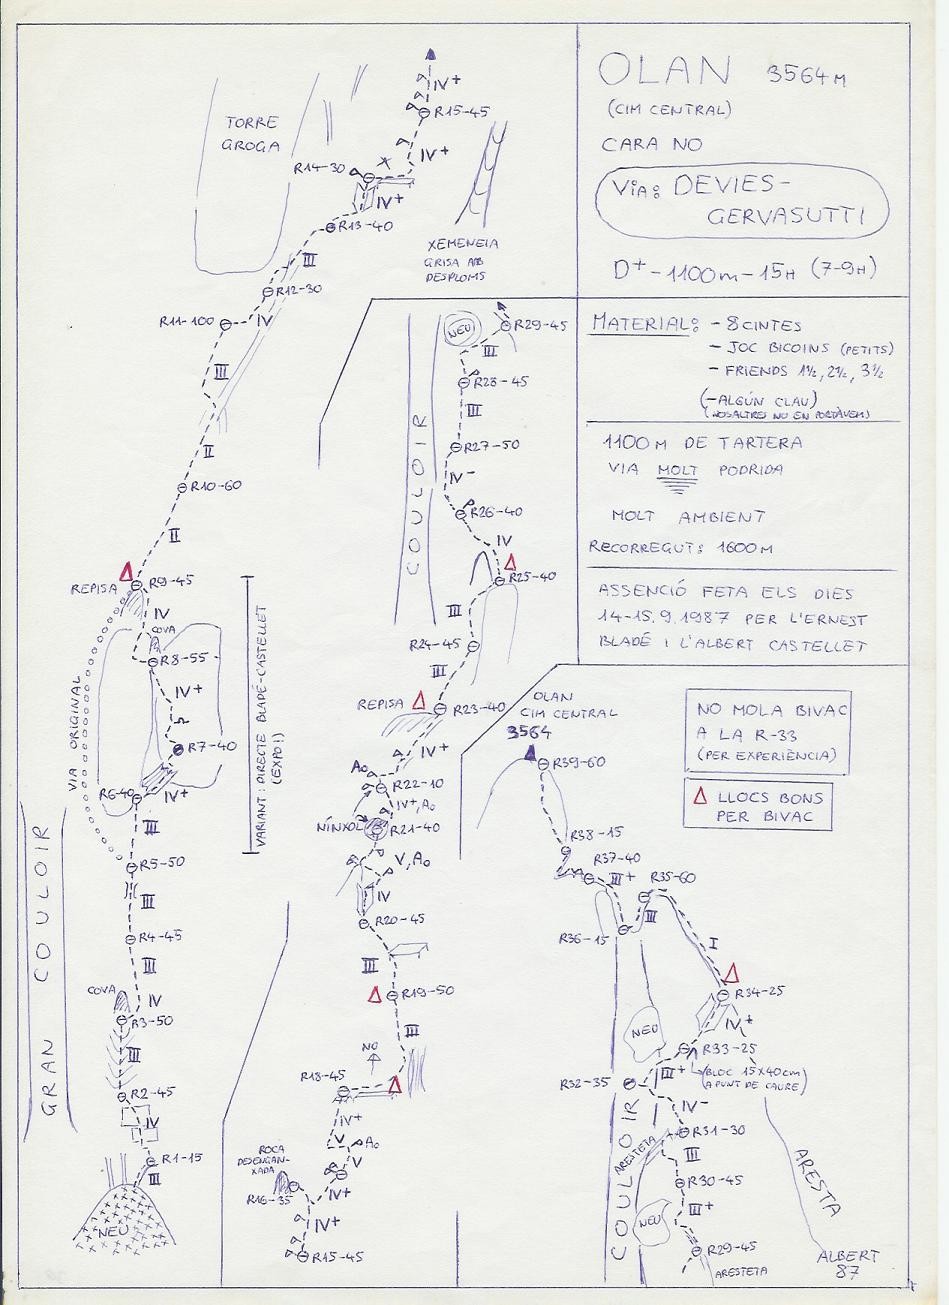 OLAN 3564 M
(CIM CENTRAL)
CARA NO
VIA: DEVIES-
GERVASUTTI
D+ - 1100m - 15H (7-9H)
MATERIAL: - 8 CINTES
- JOC BICOINS (PETITS)
- FRIENDS 1½, 2½, 3½
(- ALGÚN CLAU)
(NOSALTRES NO EN PORTÀVEM)
1100 M DE TARTERA
VIA MOLT PODRIDA
MOLT AMBIENT
RECORREGUT: 1600 M
ASSENCIÓ FETA ELS DIES
14-15.9.1987 PER L'ERNEST
BLADÉ I L'ALBERT CASTELLET
NO MOLA BIVAC
A LA R-33
(PER EXPERIÈNCIA)
LLOCS BONS
PER BIVAC
IV+
R15-45
IV+
TORRE
GROGA
R14-30
X
IV+
R13-40
XEMENEIA
GRISA AB
DESPLOMS
III
R12-30
R11-100
IV
III
II
R10-60
II
REPISA
R9-45
IV
COVA
R8-55
IV+
R7-40
VIA ORIGINAL
VARIANT: DIRECTE BLADÉ-CASTELLET
(EXPO!)
R6-40
IV+
III
R5-50
III
R4-45
III
COVA
IV
R3-50
III
R2-45
IV
R1-15
III
NEU
GRAN COULOIR
NEU
R29-45
III
R28-45
III
R27-50
IV-
R26-40
IV
R25-40
COULOIR
III
R24-45
III
REPISA
R23-40
IV+
A0
R22-10
IV+, A0
NÍNXOL
R21-40
V, A0
IV
R20-45
III
R19-50
III
NO
R18-45
IV+
V
A0
V
ROCA
DESENGAN-
XADA
R16-35
IV+
IV+
R15-45
OLAN
CIM CENTRAL
3564
R39-60
R38-15
R37-40
III+
R35-60
III
R36-15
I
R34-25
IV+
NEU
R33-25
(BLOC 15X40cm)
A PUNT DE CAURE)
III+
R32-35
IV-
R31-30
ARESTETA
III
R30-45
III+
NEU
R29-45
ARESTETA
COULOIR
ARESTA
ALBERT
87